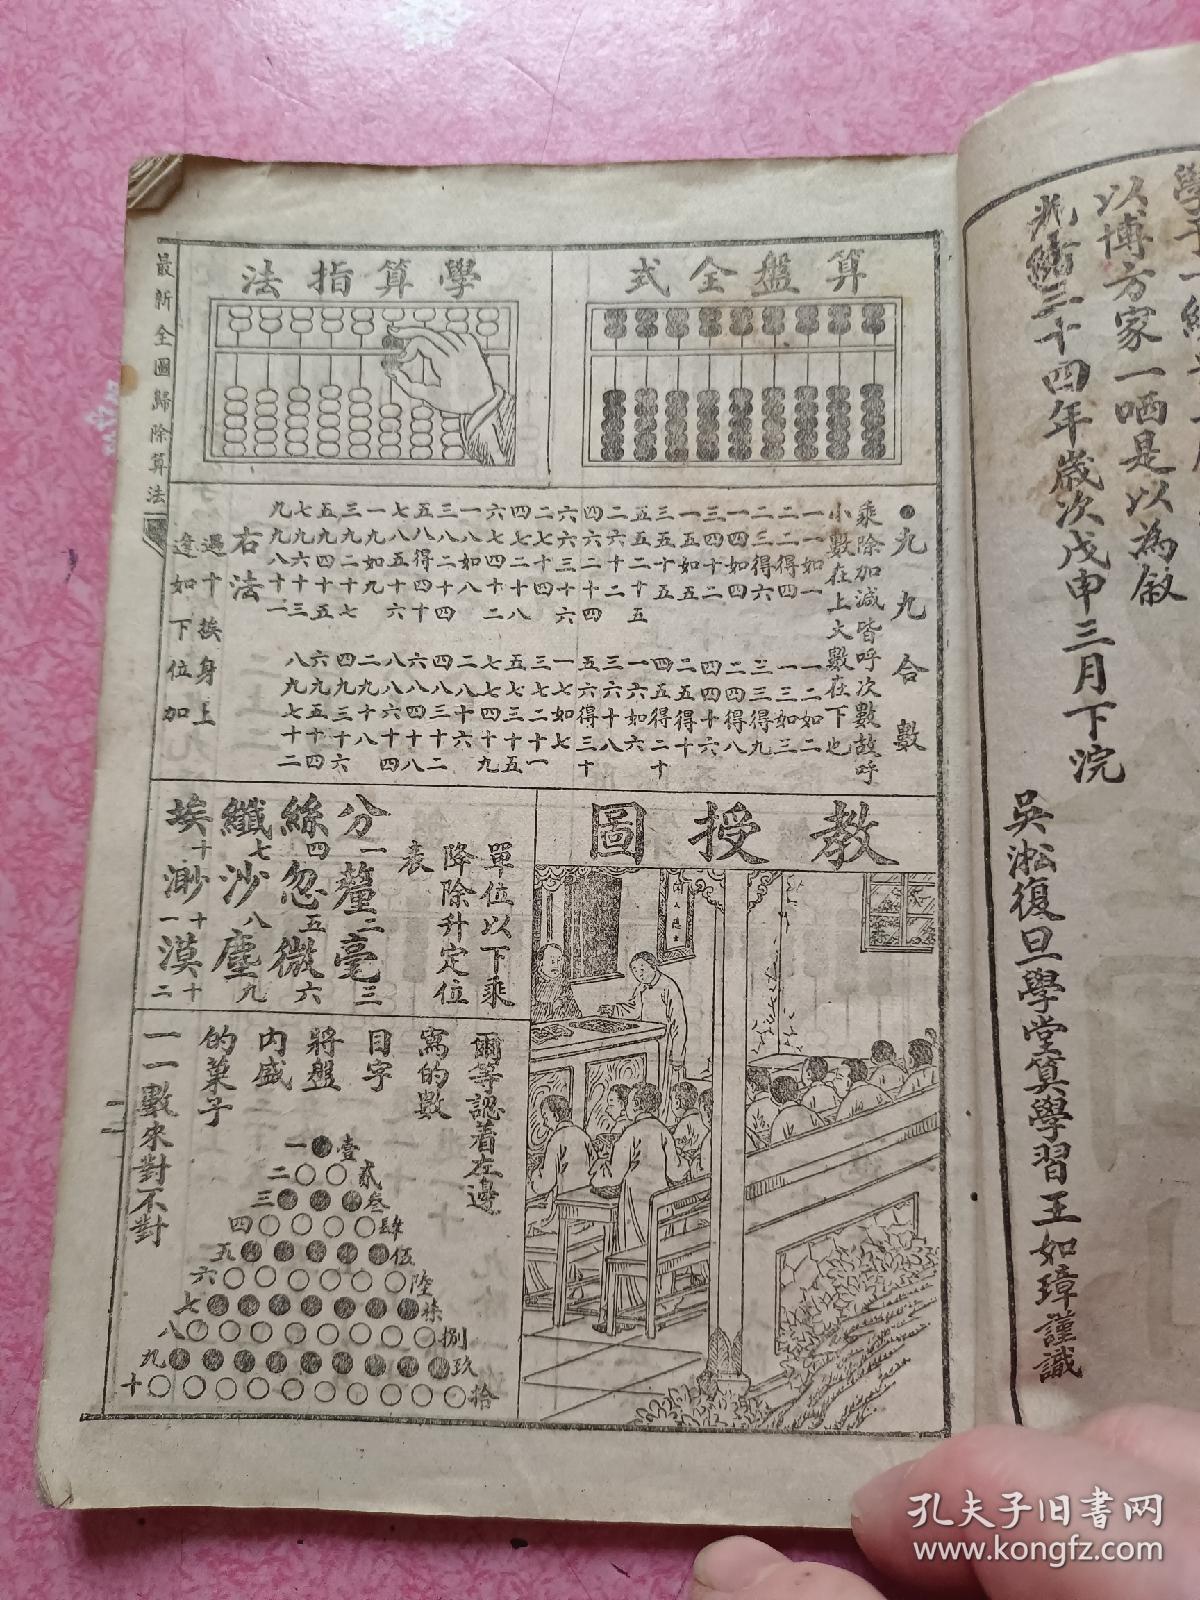 學子一
以博方家一哂是以為敘
光緒三十四年歲次戊申三月下浣
吳淞復旦學堂算學習王如璋謹識
算盤全式
學算指法
最新全圖歸除算法
九九合數
乘除加減皆呼次數故呼
小數在上大數在下也
一一如一
一二如二
二二得四
一三如三
二三得六
三三得九
一四如四
二四得八
三四十二
四四十六
一五如五
二五得十
三五十五
四五得二十
五五二十五
一六如六
二六十二
三六十八
四六二十四
五六得三十
六六三十六
一七如七
二七十四
三七二十一
四七二十八
五七三十五
六七四十二
七七四十九
一八如八
二八十六
三八二十四
四八三十二
五八得四十
六八四十八
七八五十六
八八六十四
一九如九
二九十八
三九二十七
四九三十六
五九四十五
六九五十四
七九六十三
八九七十二
九九八十一
右法
遇十挨身上
逢如下位加
教授圖
單位以下乘
降除升定位
表
分一釐二毫三
絲四忽五微六
纖七沙八塵九
埃十渺十一漠十二
爾等認着左邊
寫的數
目字
將盤
內盛
的菓子
一一數來對不對
一壹
二貳
三叄
四肆
五伍
六陸
七柒
八捌
九玖
十拾
孔夫子旧书网
www.kongfz.com